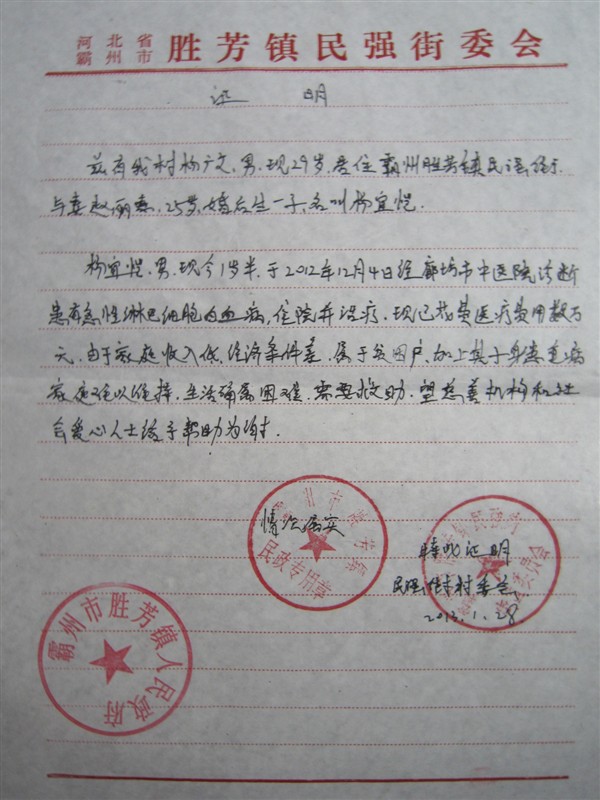 河北省
霸州市 胜芳镇民强街委会
证 明
兹有我村杨广文,男,现29岁,居住霸州胜芳镇民强街,
与妻赵丽,25岁,婚后生一子,名叫杨宜恺.
杨宜恺,男,现今1岁半,于2012年12月4日经廊坊市中医院诊断
患有急性淋巴细胞白血病,住院并治疗.现已花费医疗费用数万
元.由于家庭收入低,经济条件差,属于贫困户,加上其子身患重病
家庭难以维持,生活确属困难.需要救助.望慈善机构和社
会爱心人士给予帮助为谢.
情况属实
特此证明
民强街村委会
2013.1.28.
民政专用章
霸州市胜芳镇人民政府